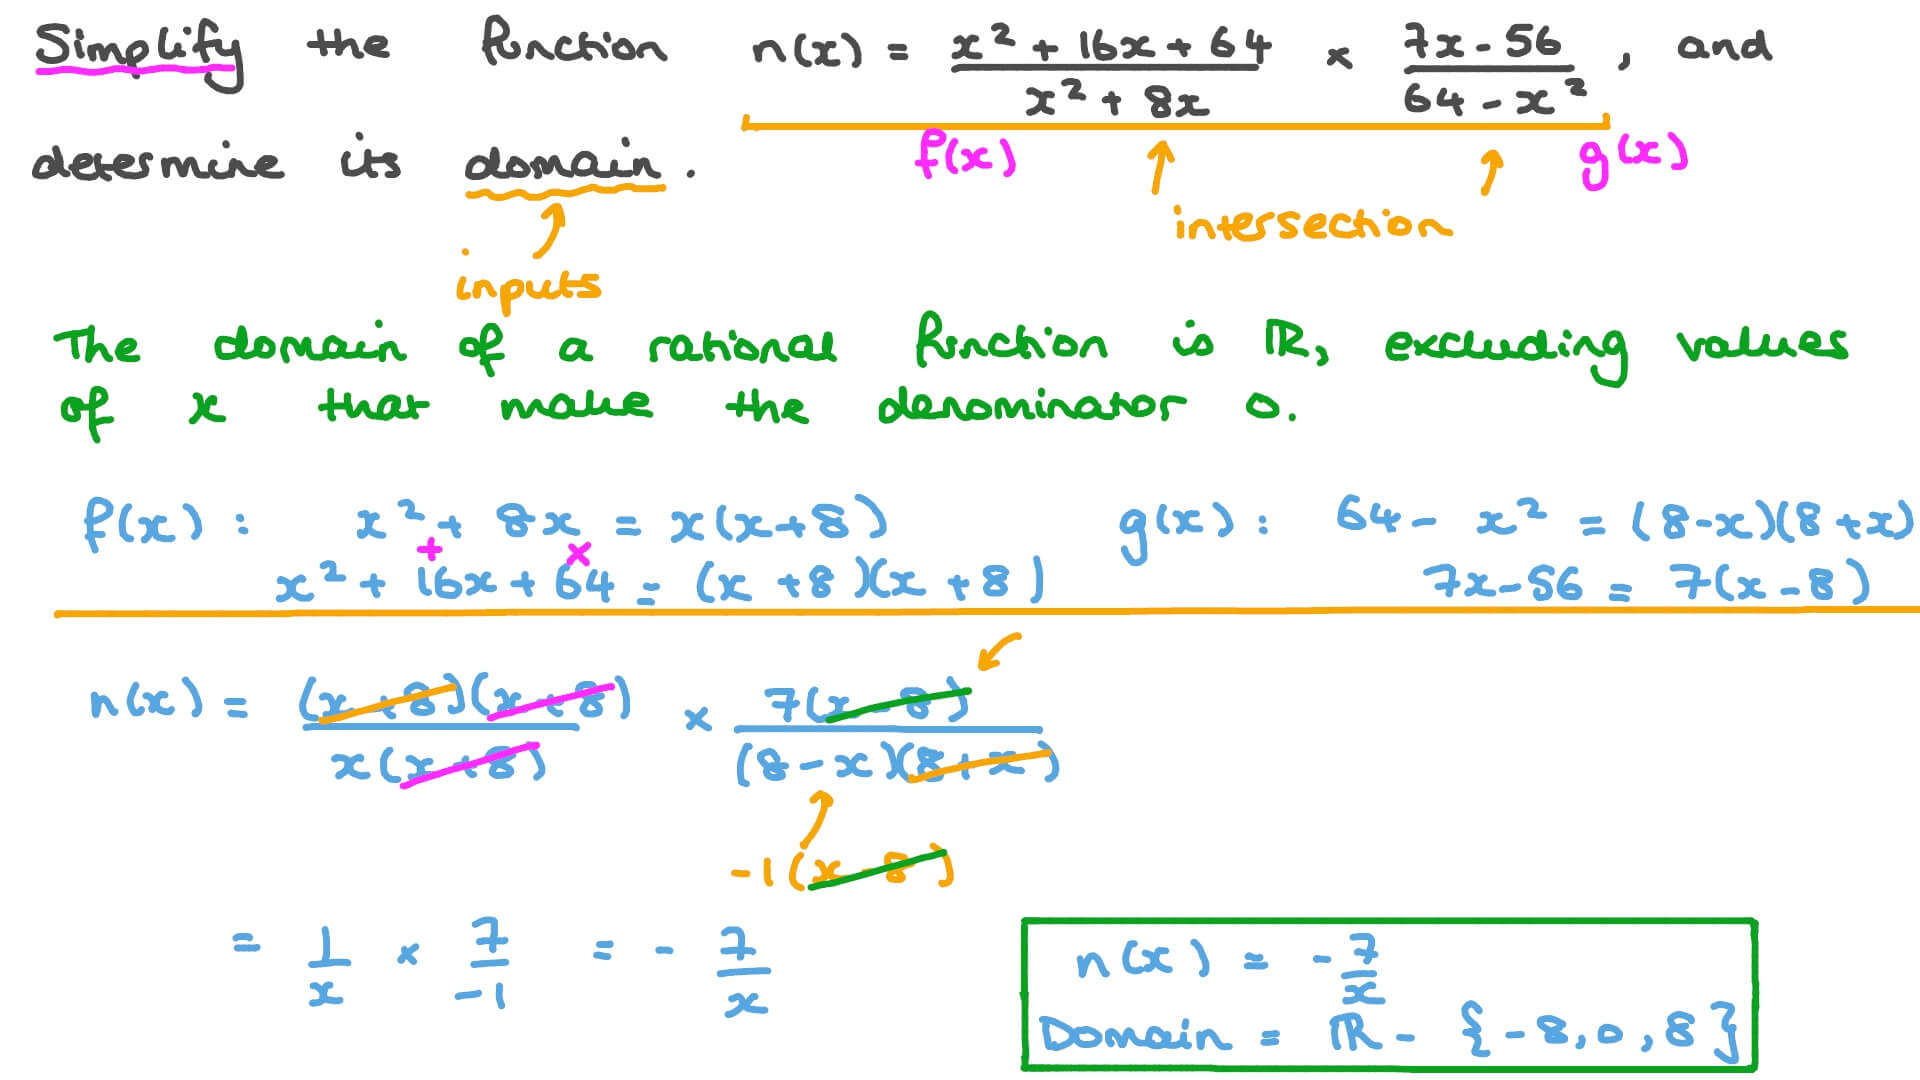 Simplify the function n(x) = x² + 16x + 64 / x² + 8x × 7x - 56 / 64 - x², and
determine its domain.
f(x) g(x)
intersection
inputs
The domain of a rational function is ℝ, excluding values
of x that make the denominator 0.
f(x): x² + 8x = x(x+8) g(x): 64 - x² = (8-x)(8+x)
+ ×
x² + 16x + 64 = (x +8)(x +8) 7x-56 = 7(x-8)
n(x) = (x+8)(x+8) / x(x+8) × 7(x-8) / (8-x)(8+x)
-1(x-8)
= 1/x × 7/-1 = - 7/x
n(x) = - 7/x
Domain = ℝ - {-8,0,8}